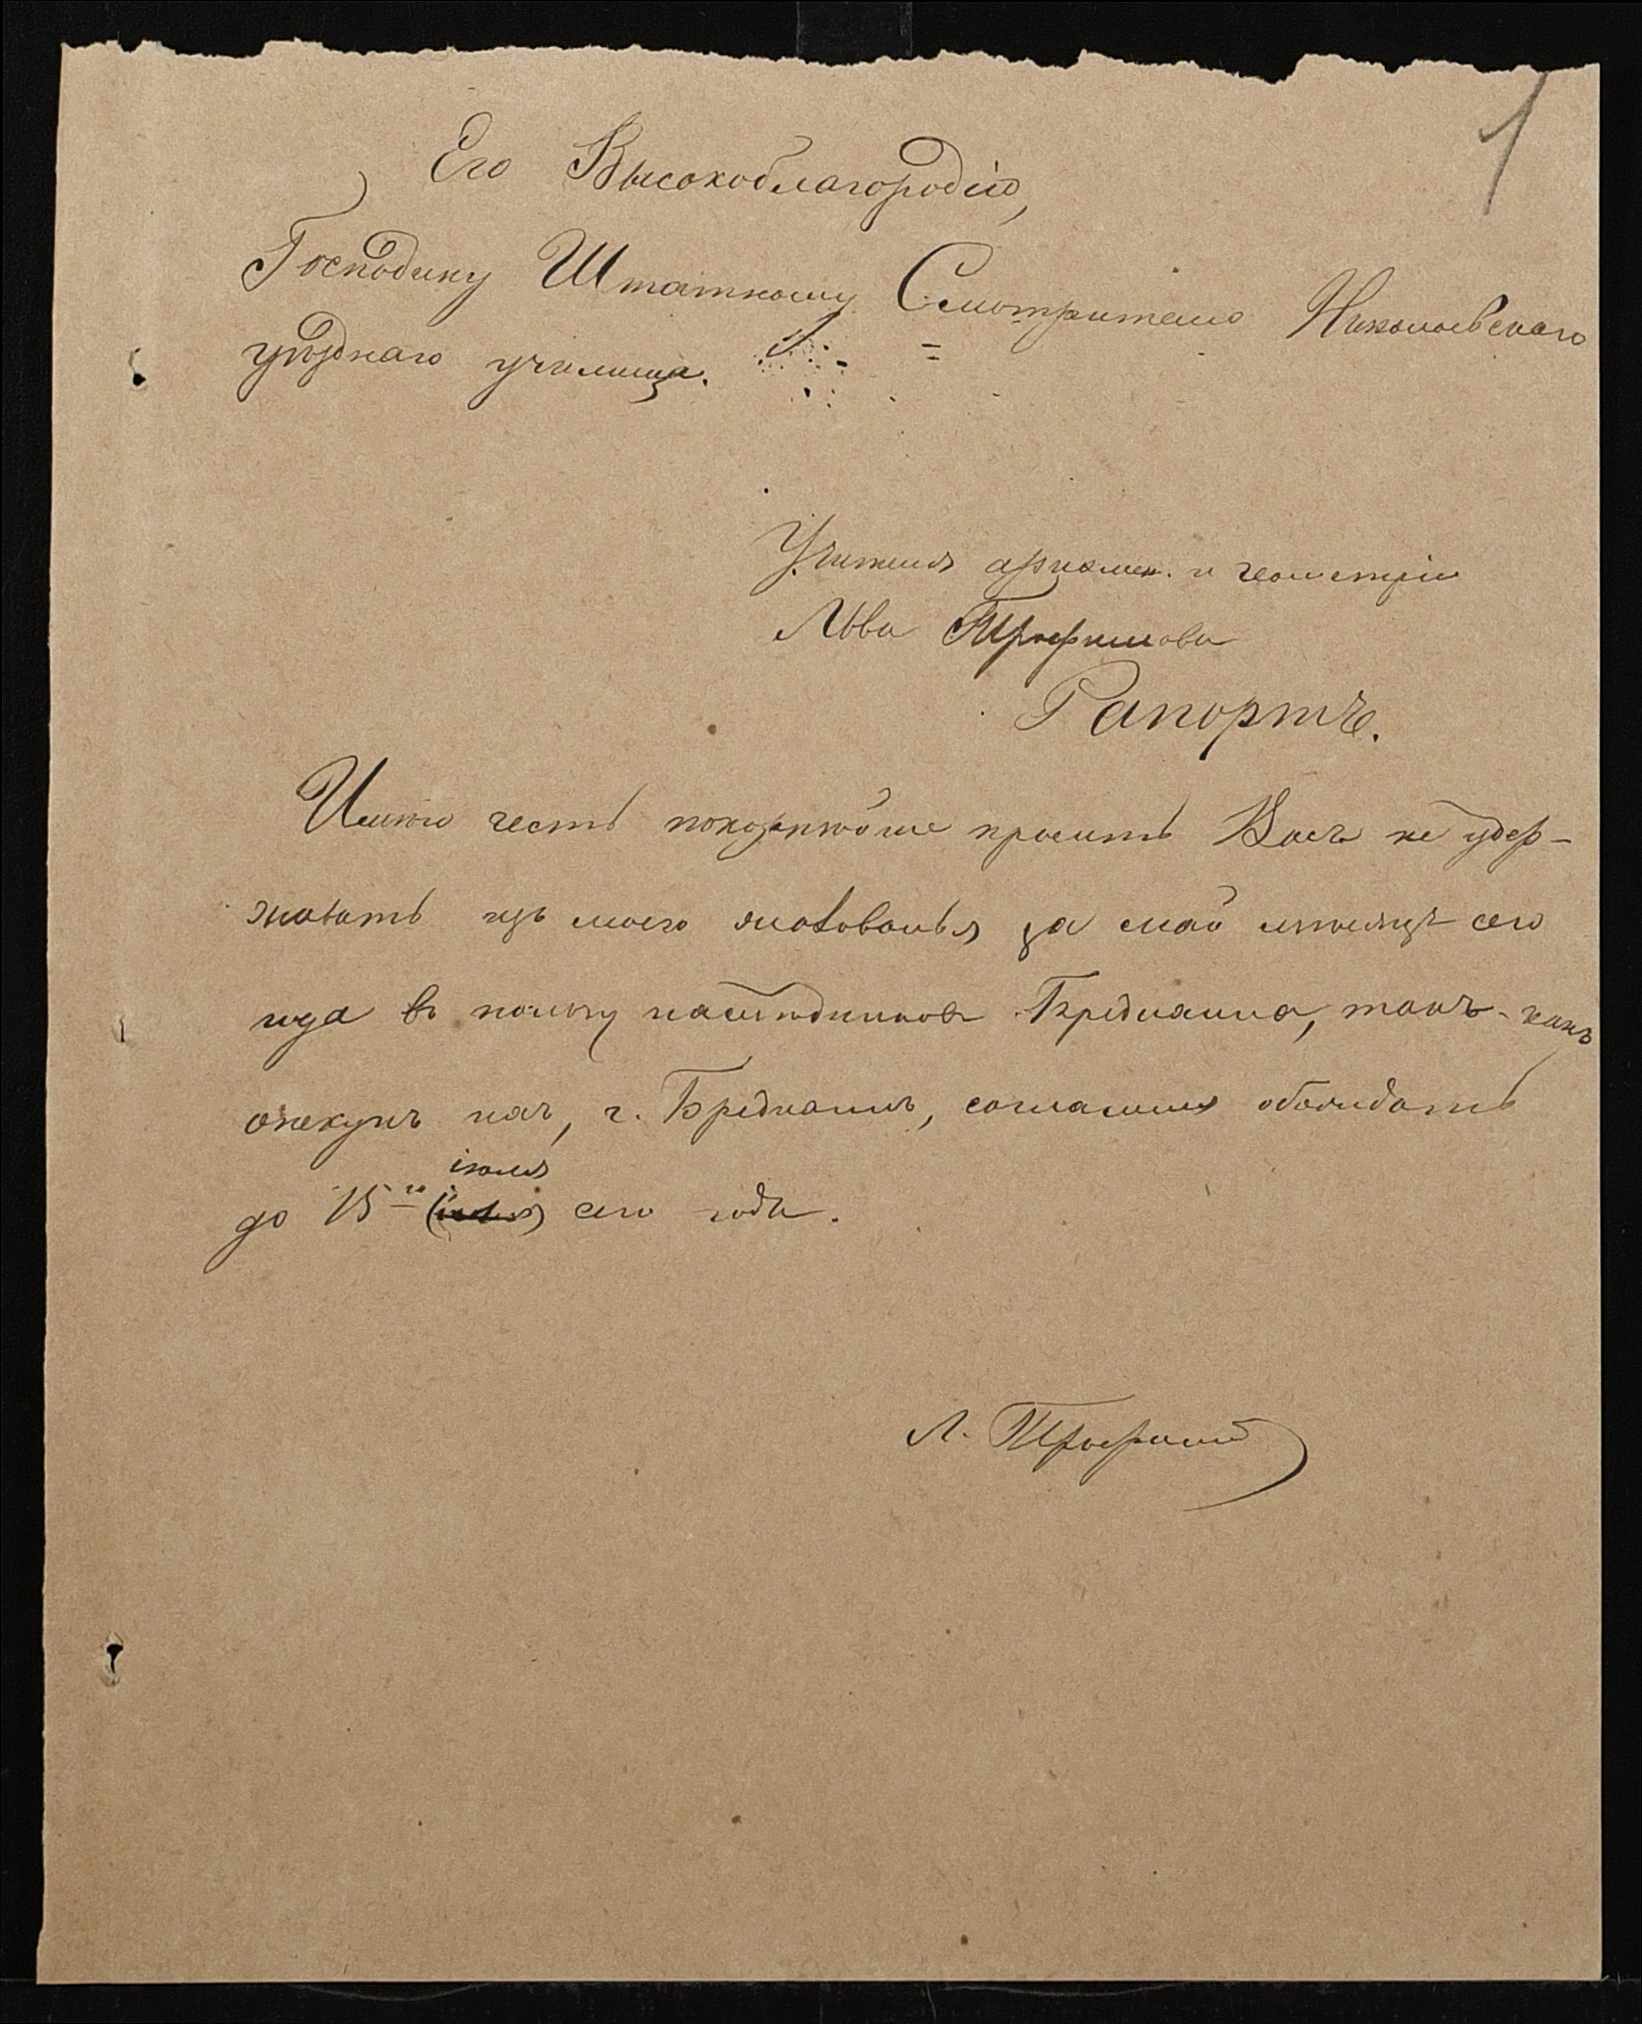 1
Его Высокоблагородію,
Господину Штатному Смотрителю Николаевскаго
уѣзднаго училища.
Учителя ариѳмет. и геометріи
Льва Трофимова
Рапортъ.
Имѣю честь покорнѣйше просить Васъ не удер-
живать изъ моего жалованья за май мѣсяцъ сего
года въ пользу наслѣдниковъ Бредихина, такъ-какъ
опекунъ ихъ, г. Бредихинъ, согласился обождать
іюля
до 15-го сего года.
Л. Трофимовъ